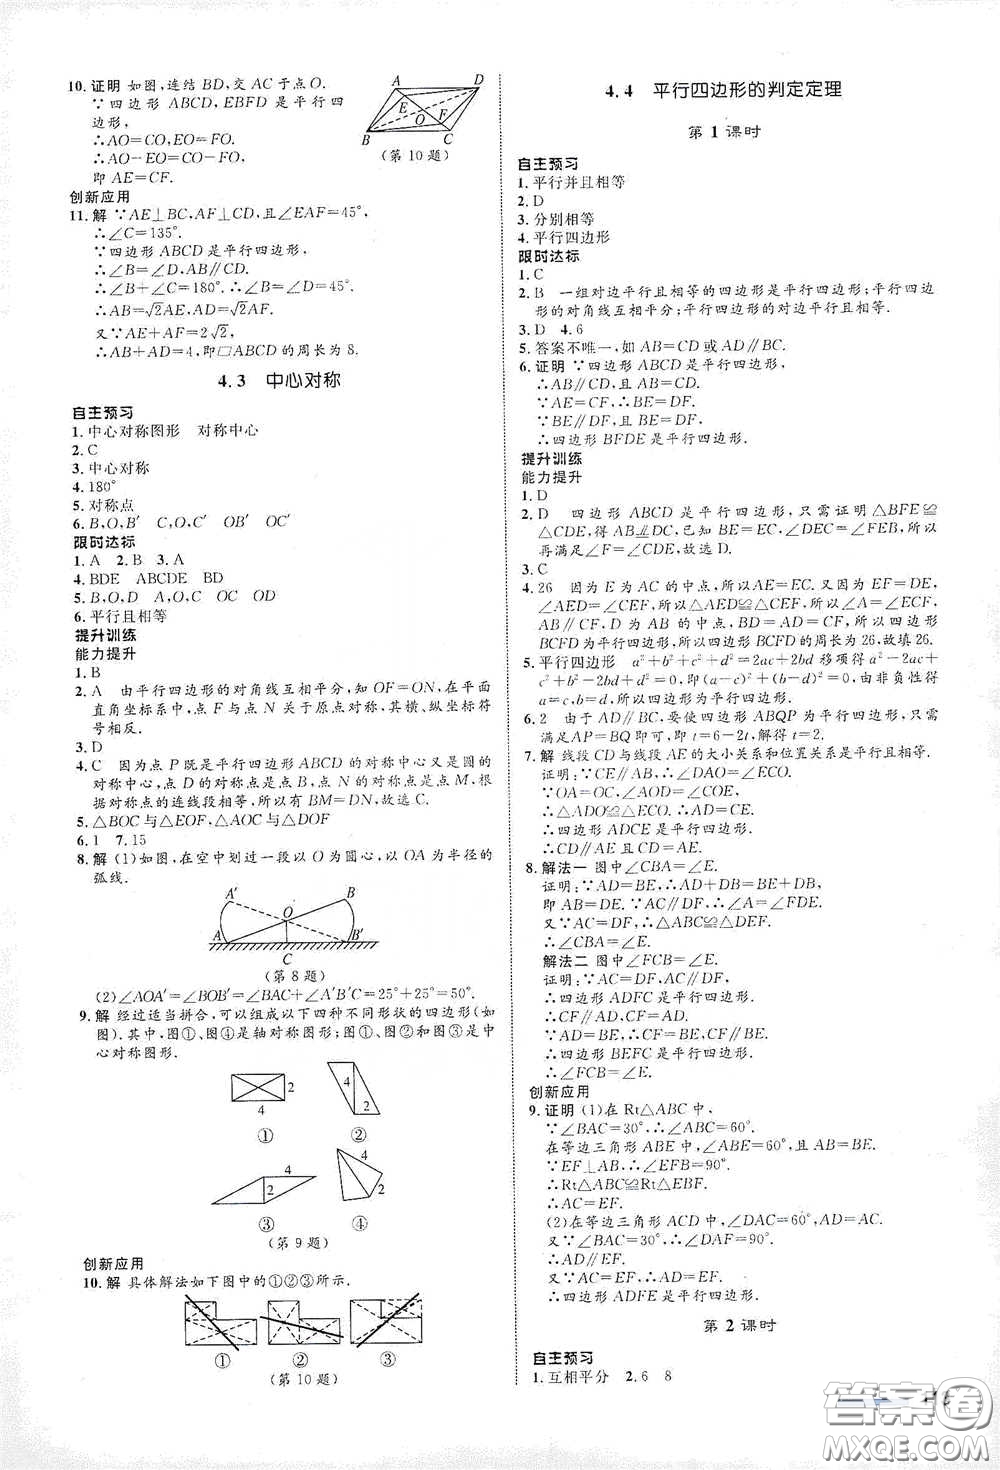 10. 证明 如图,连结 BD,交 AC 于点 O.
∵四边形 ABCD,EBFD 是平行四
边形,
∴AO=CO,EO=FO.
∴AO-EO=CO-FO,
即 AE=CF.
A D E O F B C
(第 10 题)
创新应用
11. 解 ∵AE⊥BC,AF⊥CD,且∠EAF=45°,
∴∠C=135°.
∵四边形 ABCD 是平行四边形,
∴∠B=∠D,AB∥CD.
∴∠B+∠C=180°.∴∠B=∠D=45°.
∴AB=√2AE,AD=√2AF.
又∵AE+AF=2√2,
∴AB+AD=4,即▱ABCD 的周长为 8.
4.3 中心对称
自主预习
1. 中心对称图形 对称中心
2. C
3. 中心对称
4. 180°
5. 对称点
6. B,O,B′ C,O,C′ OB′ OC′
限时达标
1. A 2. B 3. A
4. BDE ABCDE BD
5. B,O,D A,O,C OB OC
6. 平行且相等
提升训练
能力提升
1. B
2. A 由平行四边形的对角线互相平分,知 OF=ON,在平面
直角坐标系中,点 F 与点 N 关于原点对称,其横、纵坐标符
号相反.
3. D
4. C 因为点 P 既是平行四边形 ABCD 的对称中心又是圆的
对称中心,点 D 的对称点是点 B,点 N 的对称点是点 M,根
据对称点的连线段相等,所以有 BM=DN,故选 C.
5. △BOC 与△EOF,△AOC 与△DOF
6. 1 7. 15
8. 解 (1)如图,在空中划过一段以 O 为圆心,以 OA 为半径的
弧线.
A′ B O A B′ C
(第 8 题)
(2)∠AOA′=∠BOB′=∠BAC+∠A′B′C=25°+25°=50°.
9. 解 经过适当拼合,可以组成以下四种不同形状的四边形(如
图).其中,图①、图④是轴对称图形;图①、图②和图③是中
心对称图形.
2 4 4 2
① ②
4 2 4 2
③ ④
(第 9 题)
创新应用
10. 解 具体解法如下图中的①②③所示.
① ② ③
(第 10 题)
4.4 平行四边形的判定定理
第 1 课时
自主预习
1. 平行并且相等
2. D
3. 分别相等
4. 平行四边形
限时达标
1. C
2. B 一组对边平行且相等的四边形是平行四边形;平行四边形
的对角线互相平分;平行四边形的对边平行且相等.
3. D 4. 6
5. 答案不唯一,如 AB=CD 或 AD∥BC.
6. 证明 ∵四边形 ABCD 是平行四边形,
∴AB∥CD,且 AB=CD.
∵AE=CF,∴BE=DF.
∵BE∥DF,且 BE=DF,
∴四边形 BFDE 是平行四边形.
提升训练
能力提升
1. D
2. D 四边形 ABCD 是平行四边形,只需证明△BFE≌
△CDE,得 AB⫽DC,已知 BE=EC,∠DEC=∠FEB,所以
再满足∠F=∠CDE,故选 D.
3. C
4. 26 因为 E 为 AC 的中点,所以 AE=EC.又因为 EF=DE,
∠AED=∠CEF,所以△AED≌△CEF,所以∠A=∠ECF,
AB∥CF,又因为 D 为 AB 的中点,BD=AD=CF,所以四边形
BCFD 为平行四边形,所以四边形 BCFD 的周长为 26,故填 26.
5. 平行四边形 a²+b²+c²+d²=2ac+2bd 移项得 a²-2ac+
c²+b²-2bd+d²=0,即(a-c)²+(b-d)²=0,由非负性得
a=c,b=d,所以四边形为平行四边形.
6. 2 由于 AD∥BC,要使四边形 ABQP 为平行四边形,只需
满足 AP=BQ 即可,即 t=6-2t,解得 t=2.
7. 解 线段 CD 与线段 AE 的大小关系和位置关系是平行且相等.
证明:∵CE∥AB,∴∠DAO=∠ECO.
∵OA=OC,∠AOD=∠COE,
∴△ADO≌△ECO.∴AD=CE.
∴四边形 ADCE 是平行四边形.
∴CD∥AE 且 CD=AE.
8. 解法一 图中∠CBA=∠E.
证明:∵AD=BE,∴AD+DB=BE+DB,
即 AB=DE.∵AC∥DF,∴∠A=∠FDE.
又∵AC=DF,∴△ABC≌△DEF.
∴∠CBA=∠E.
解法二 图中∠FCB=∠E.
证明:∵AC=DF,AC∥DF,
∴四边形 ADFC 是平行四边形.
∴CF∥AD,CF=AD.
∵AD=BE,∴CF=BE,CF∥BE.
∴四边形 BEFC 是平行四边形.
∴∠FCB=∠E.
创新应用
9. 证明 (1)在 Rt△ABC 中,
∵∠BAC=30°,∴∠ABC=60°.
在等边三角形 ABE 中,∠ABE=60°,且 AB=BE.
∵EF⊥AB,∴∠EFB=90°.
∴Rt△ABC≌Rt△EFB.
∴AC=EF.
(2)在等边三角形 ACD 中,∠DAC=60°,AD=AC.
又∵∠BAC=30°,∴∠DAF=90°.
∴AD∥EF.
又∵AC=EF,∴AD=EF.
∴四边形 ADFE 是平行四边形.
第 2 课时
自主预习
1. 互相平分 2. 6 8
答案卷
MXQE.COM